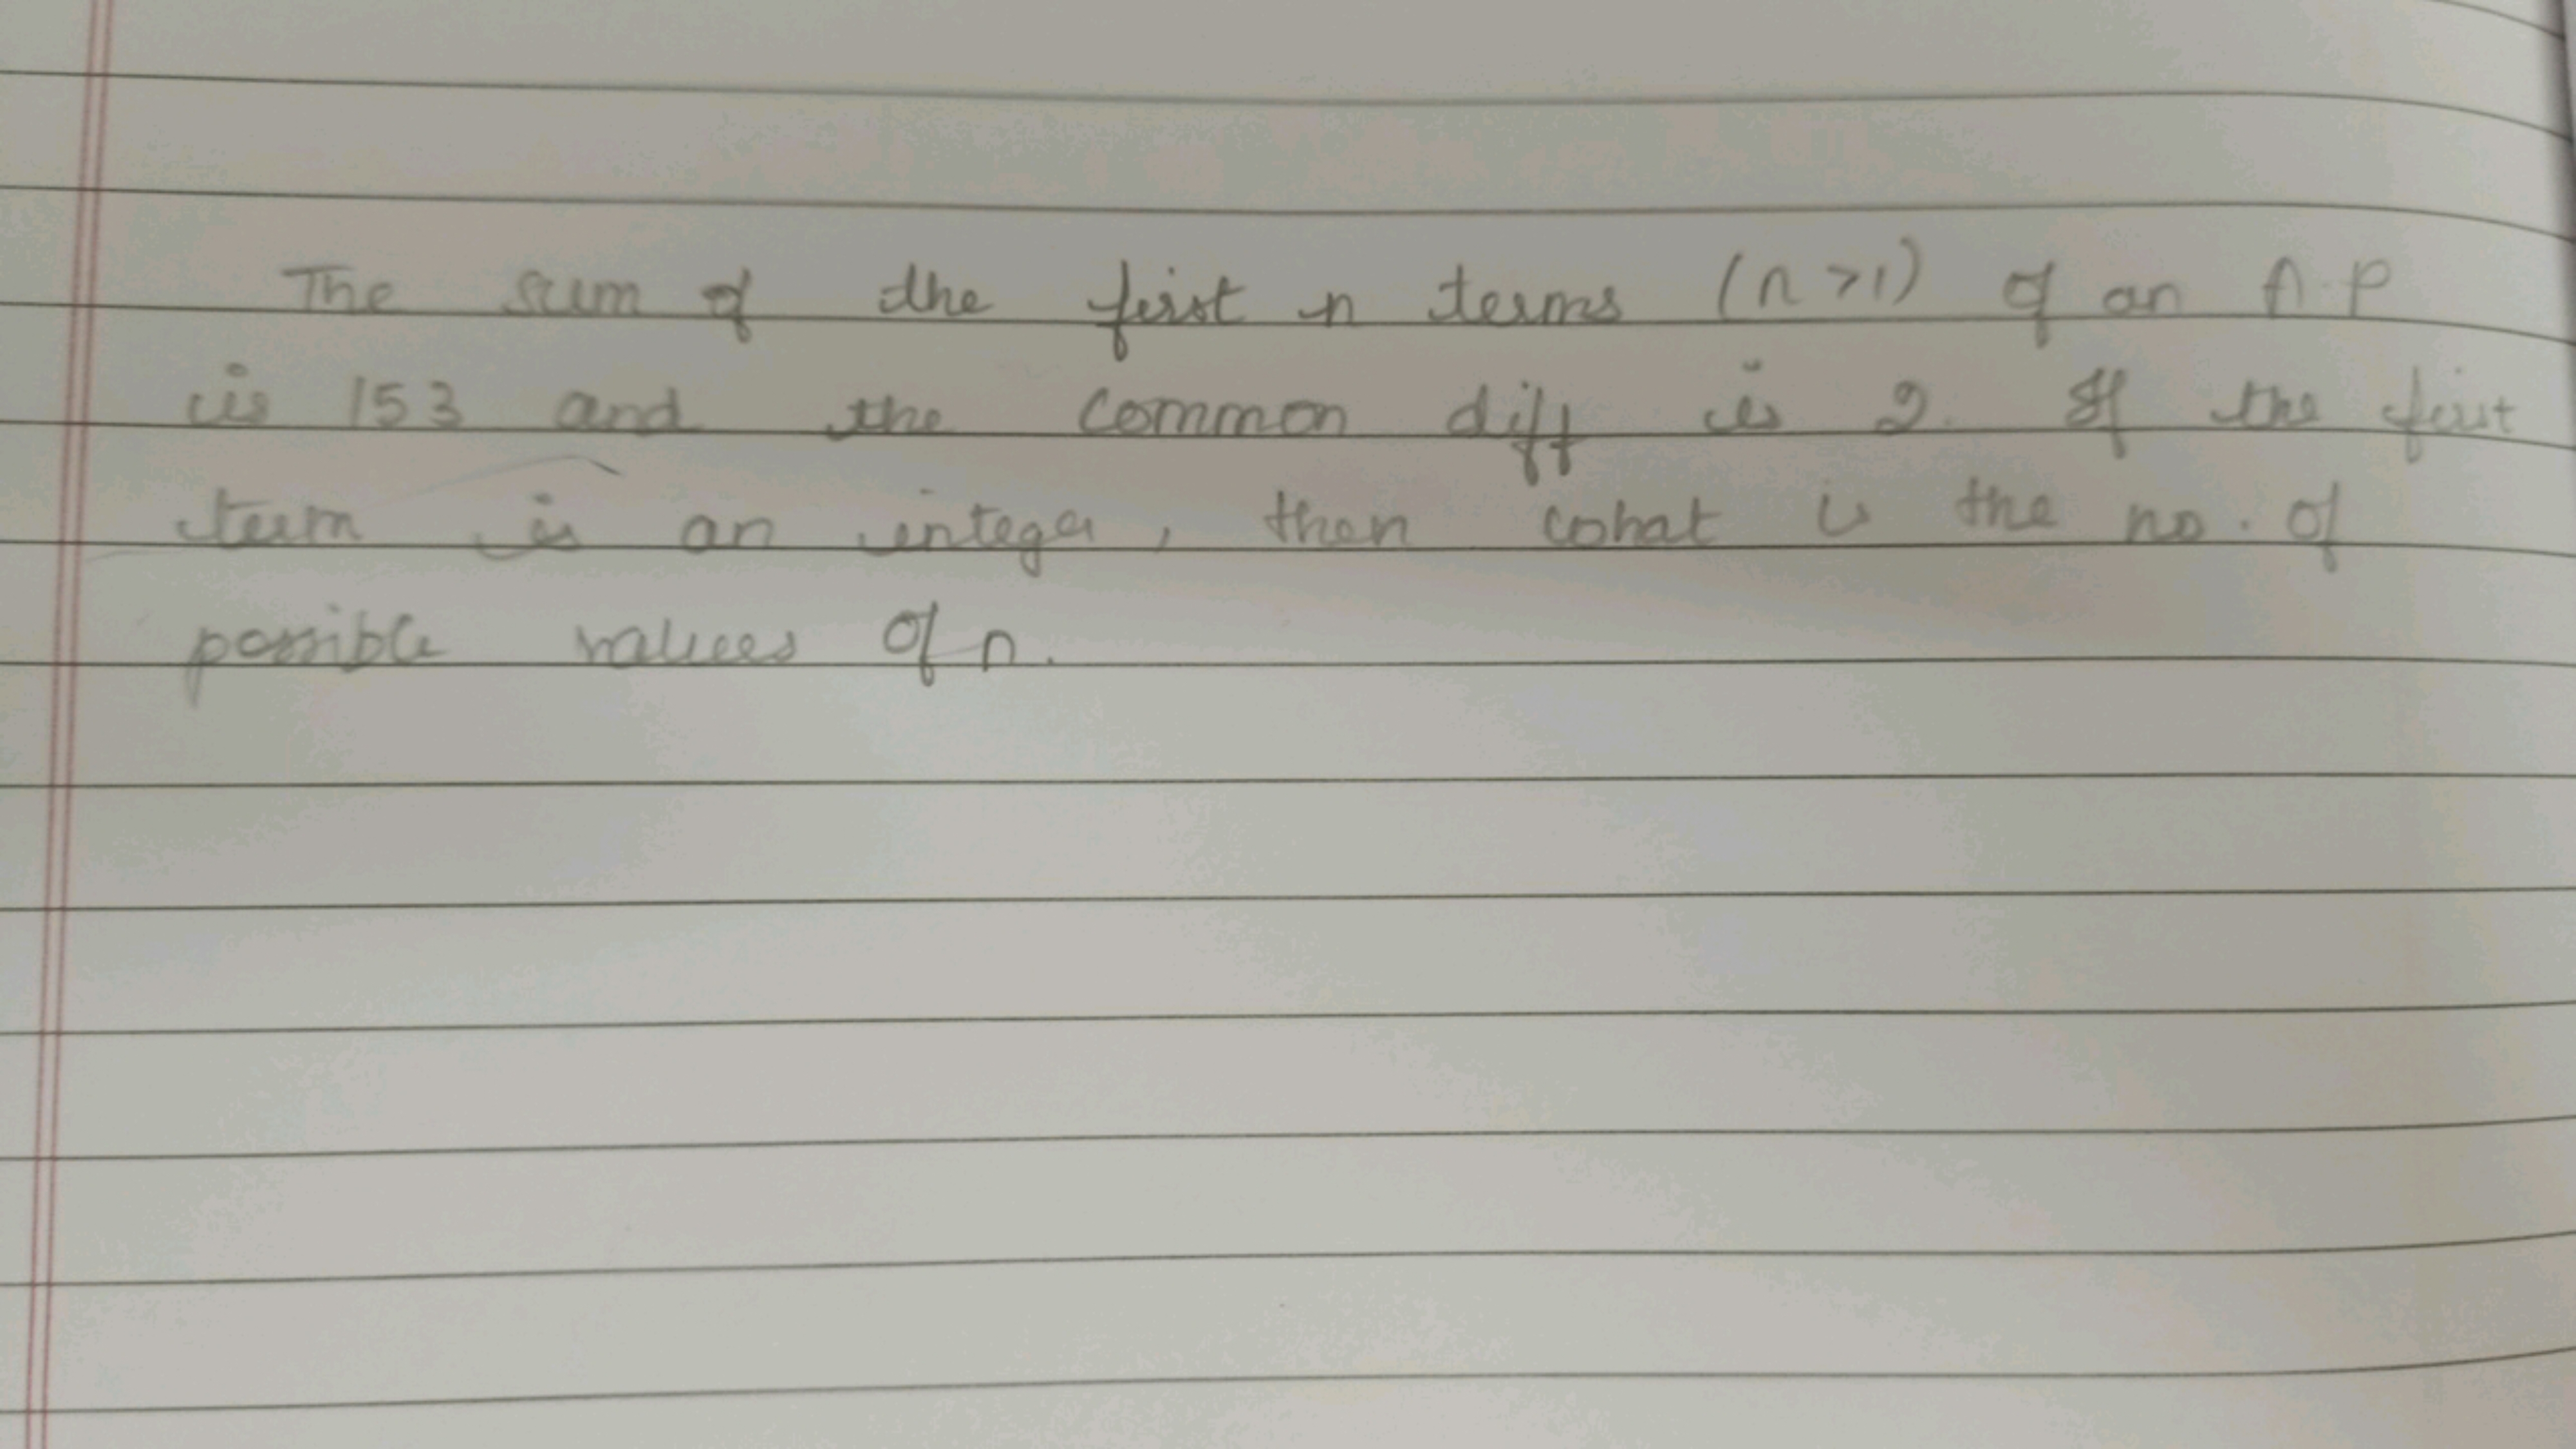 The sum of the first n terms (n >1) of an A.P
is 153 and the common diff is 2. If the first
term is an integer, then what is the no. of
possible values of n.